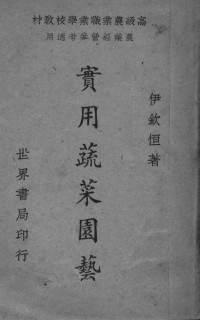 高級農業職業學校敎材
農業經營業者適用
伊欽恒著
實用蔬菜園藝
世界書局印行